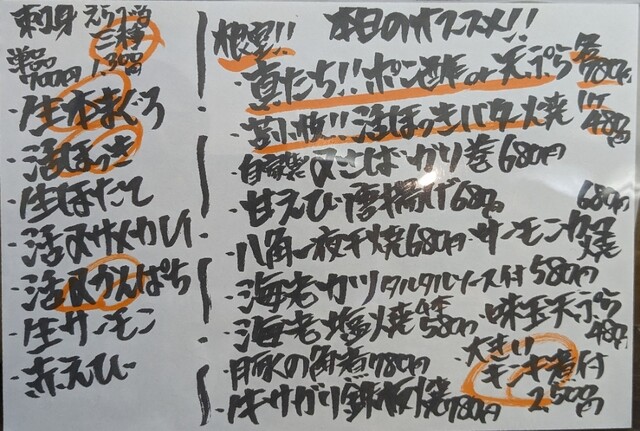 刺身 えらべる三種 1.300円
単品 700円
・生本まぐろ
・活ほっき
・生ほたて
・活〆サメガレイ
・活〆かんぱち
・生サーモン
・赤えび
本日のオススメ!!
根室!!
・真たち!!ポン酢or天ぷら 各780円
・苫小牧!!活ほっきバター焼 1ケ480円
・自家製〆さばガリ巻 680円
・甘えび唐揚げ 680円
・八角一夜干焼 680円
・サーモンカマ焼 680円
・海老カツタルタルソース付 580円
・海老塩焼 580円
・味玉天ぷら 480円
・豚の角煮 780円
・大きいキンキ煮付 2.500円
・牛サガリ鉄板焼 780円